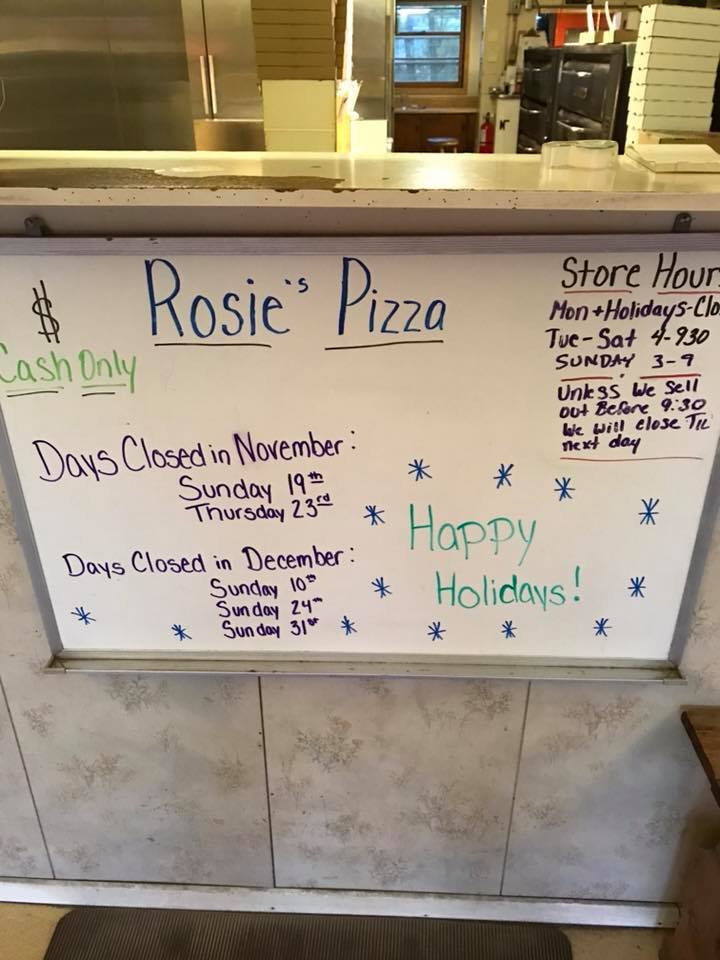 $
Cash Only
Rosie's Pizza
Store Hour
Mon + Holidays - Clo
Tue - Sat 4-930
SUNDAY 3-9
Unless We Sell
out Before 9:30
We Will close TIL
next day
Days Closed in November:
Sunday 19th
Thursday 23rd
Days Closed in December:
Sunday 10th
Sunday 24th
Sunday 31st
Happy
Holidays!